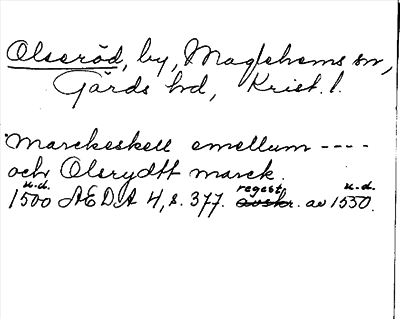 Olseröd, by, Maglehems sn,
Gärds hd, Krist. l.
Marckeskell emellum ----
och Olsrydtt marck.
u.d. regest u.d.
1500 ÆDA 4, s. 377. avskr. av 1550.